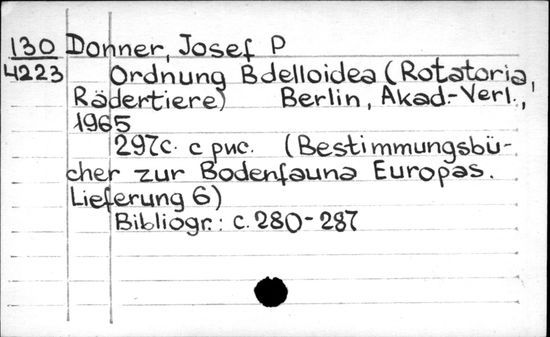 130 Donner, Josef P
4223 Ordnung Bdelloidea (Rotatoria,
Rädertiere) Berlin, Akad.-Verl.,
1965
297с. с рис. (Bestimmungsbü-
cher zur Bodenfauna Europas.
Lieferung 6)
Bibliogr.: с. 280-287